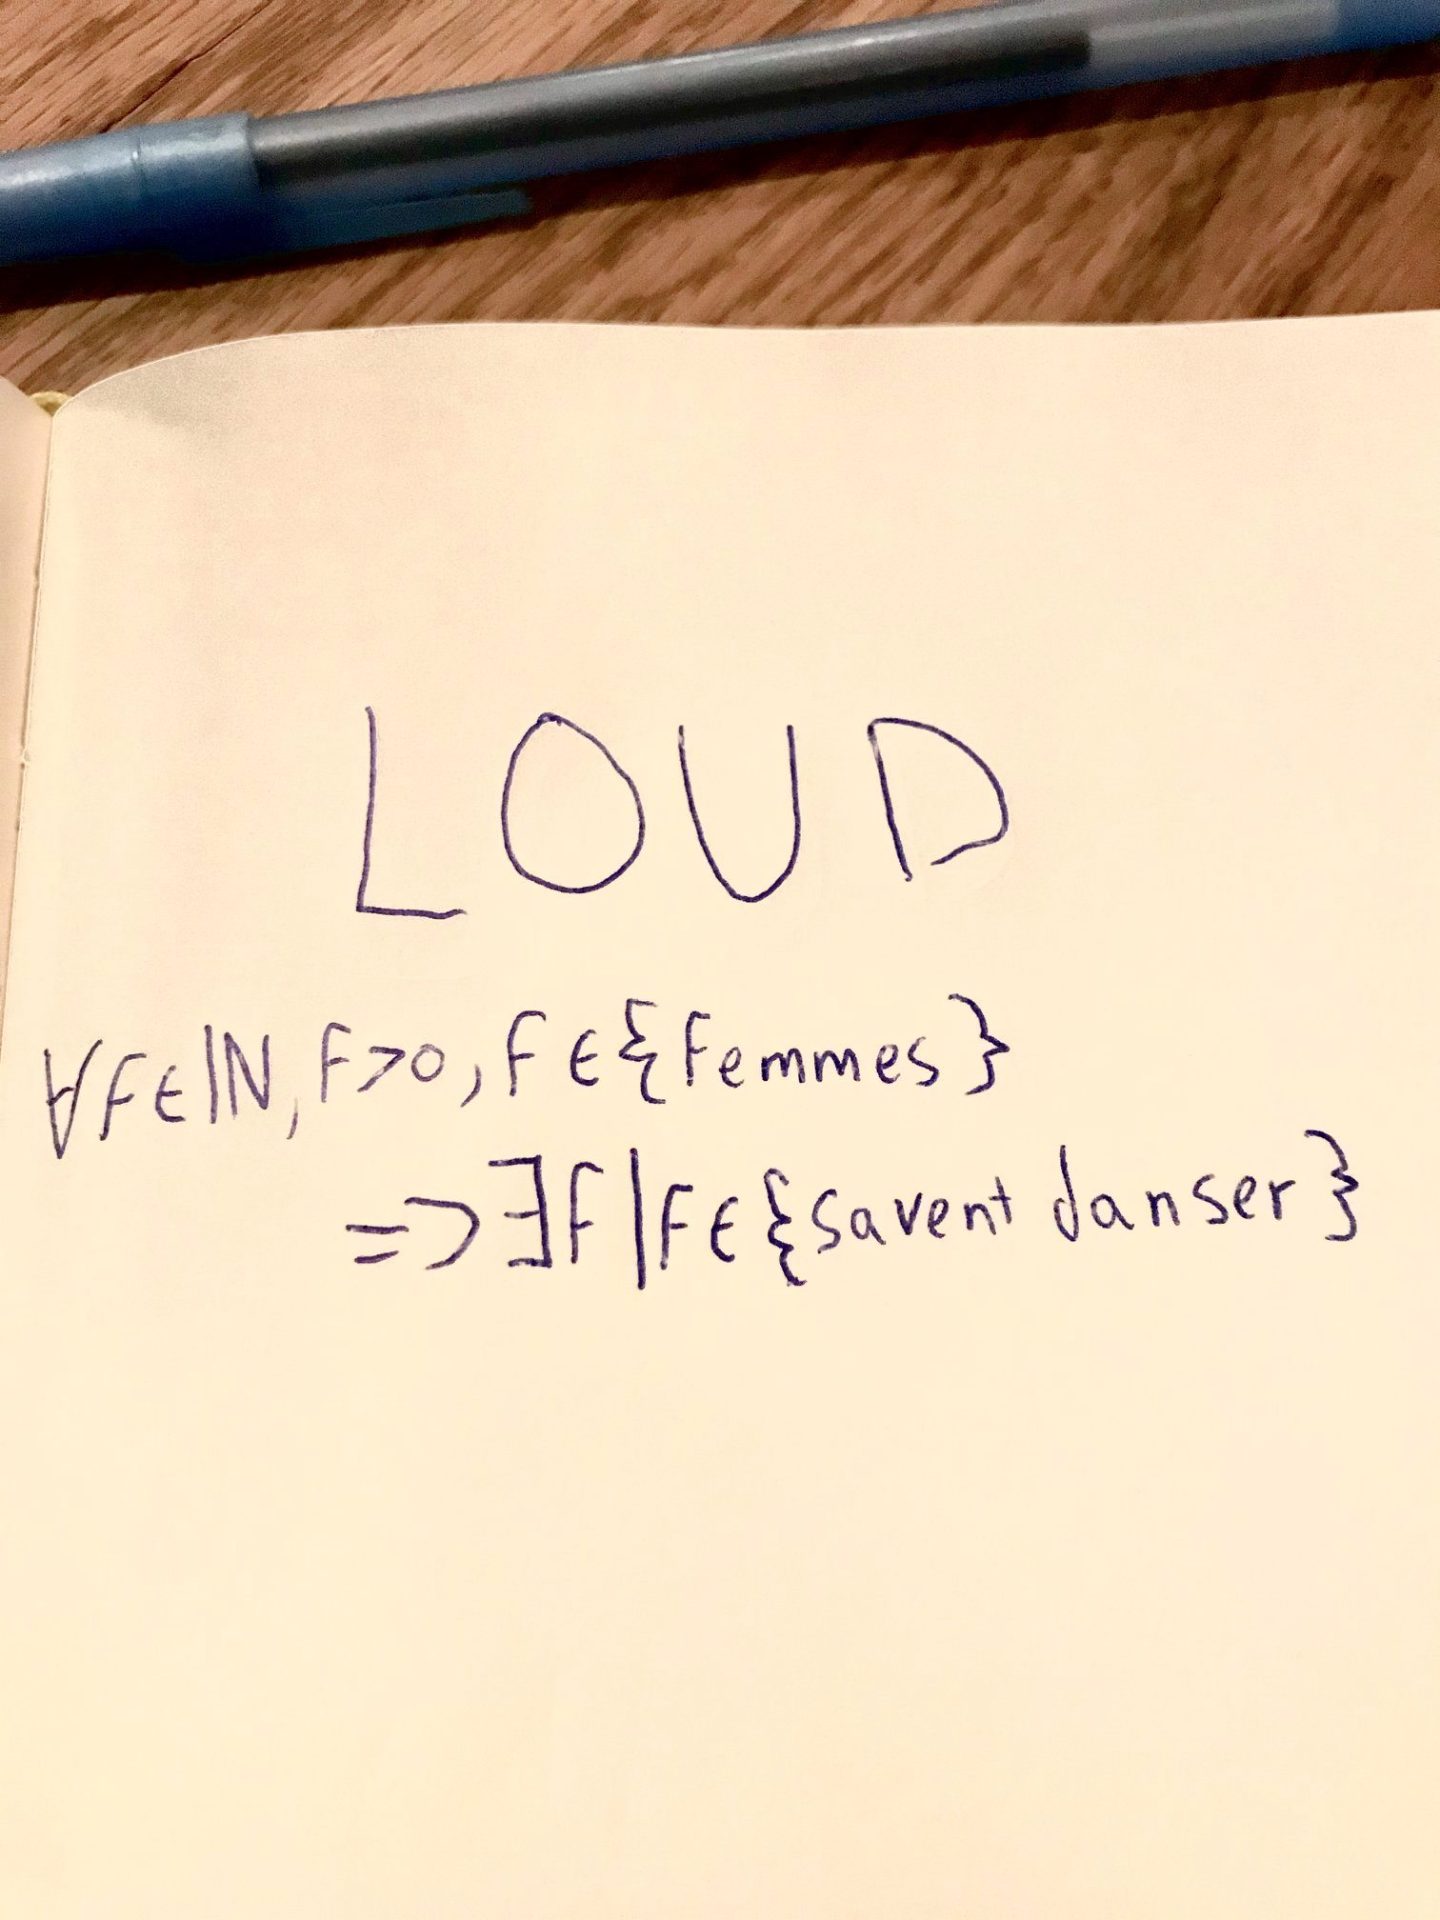 LOUD
∀F∈ℕ, F>0, F∈{Femmes}
=>∃F|F∈{Savent danser}